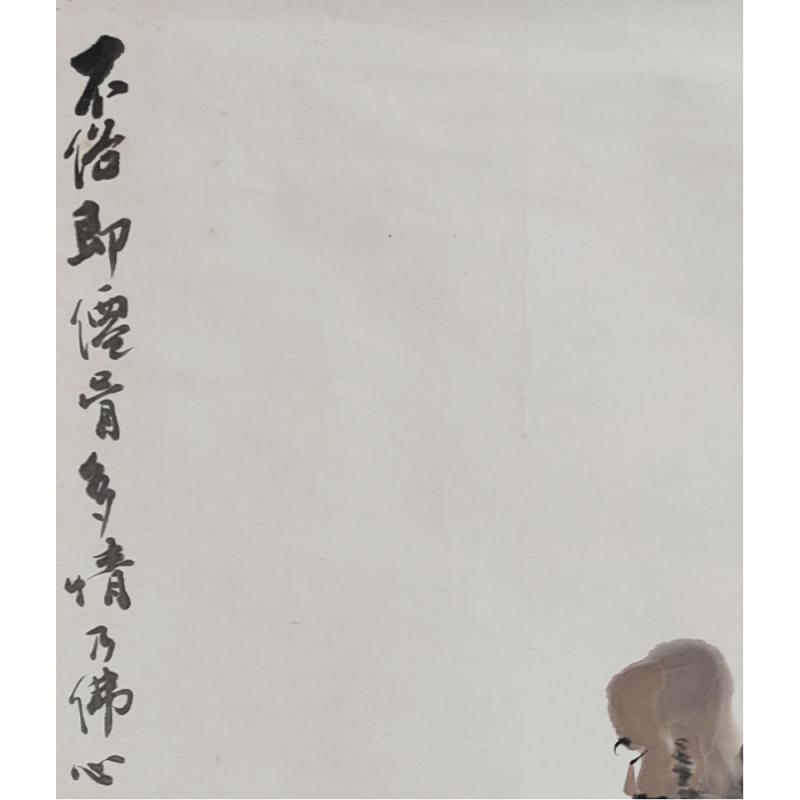 不俗即僊骨多情乃佛心